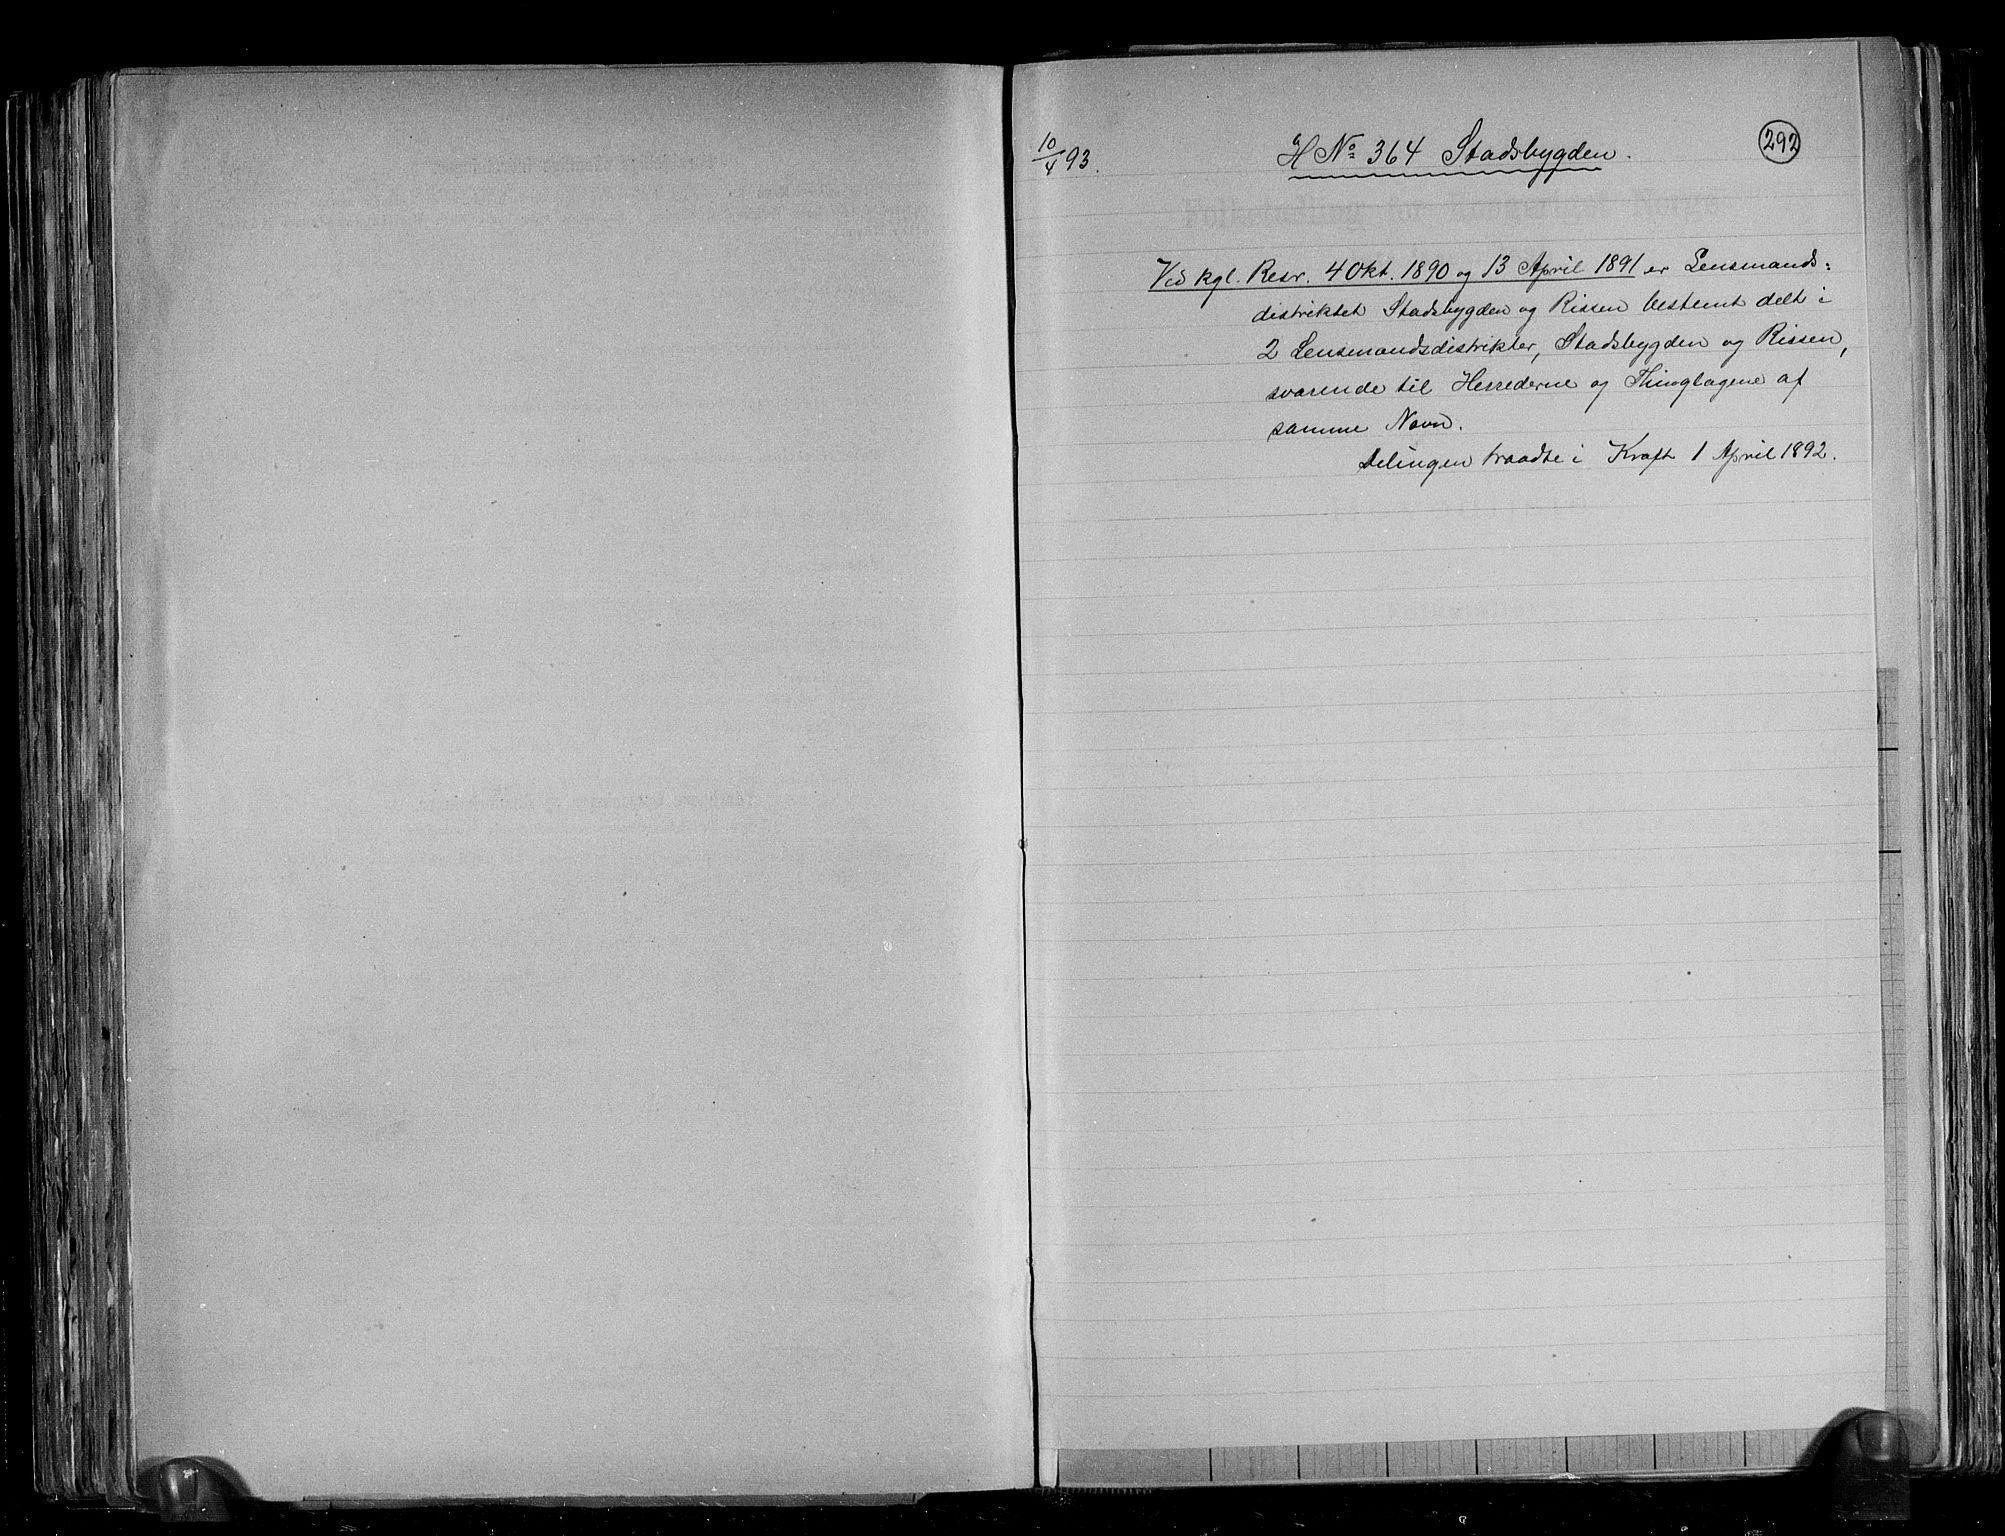 10/4 93.
H No 364 Stadsbygden.
292
Ved kgl. Resr. 4 Okt. 1890 og 13 April 1891 er Lensmands:
distriktet Stadsbygden og Rissen bestemt delt i
2 Lensmandsdistrikter, Stadsbygden og Rissen,
svarende til Herrederne og Thinglagene af
samme Navn.
Delingen traadte i Kraft 1 April 1892.
Folketælling for Kongeriget Norge